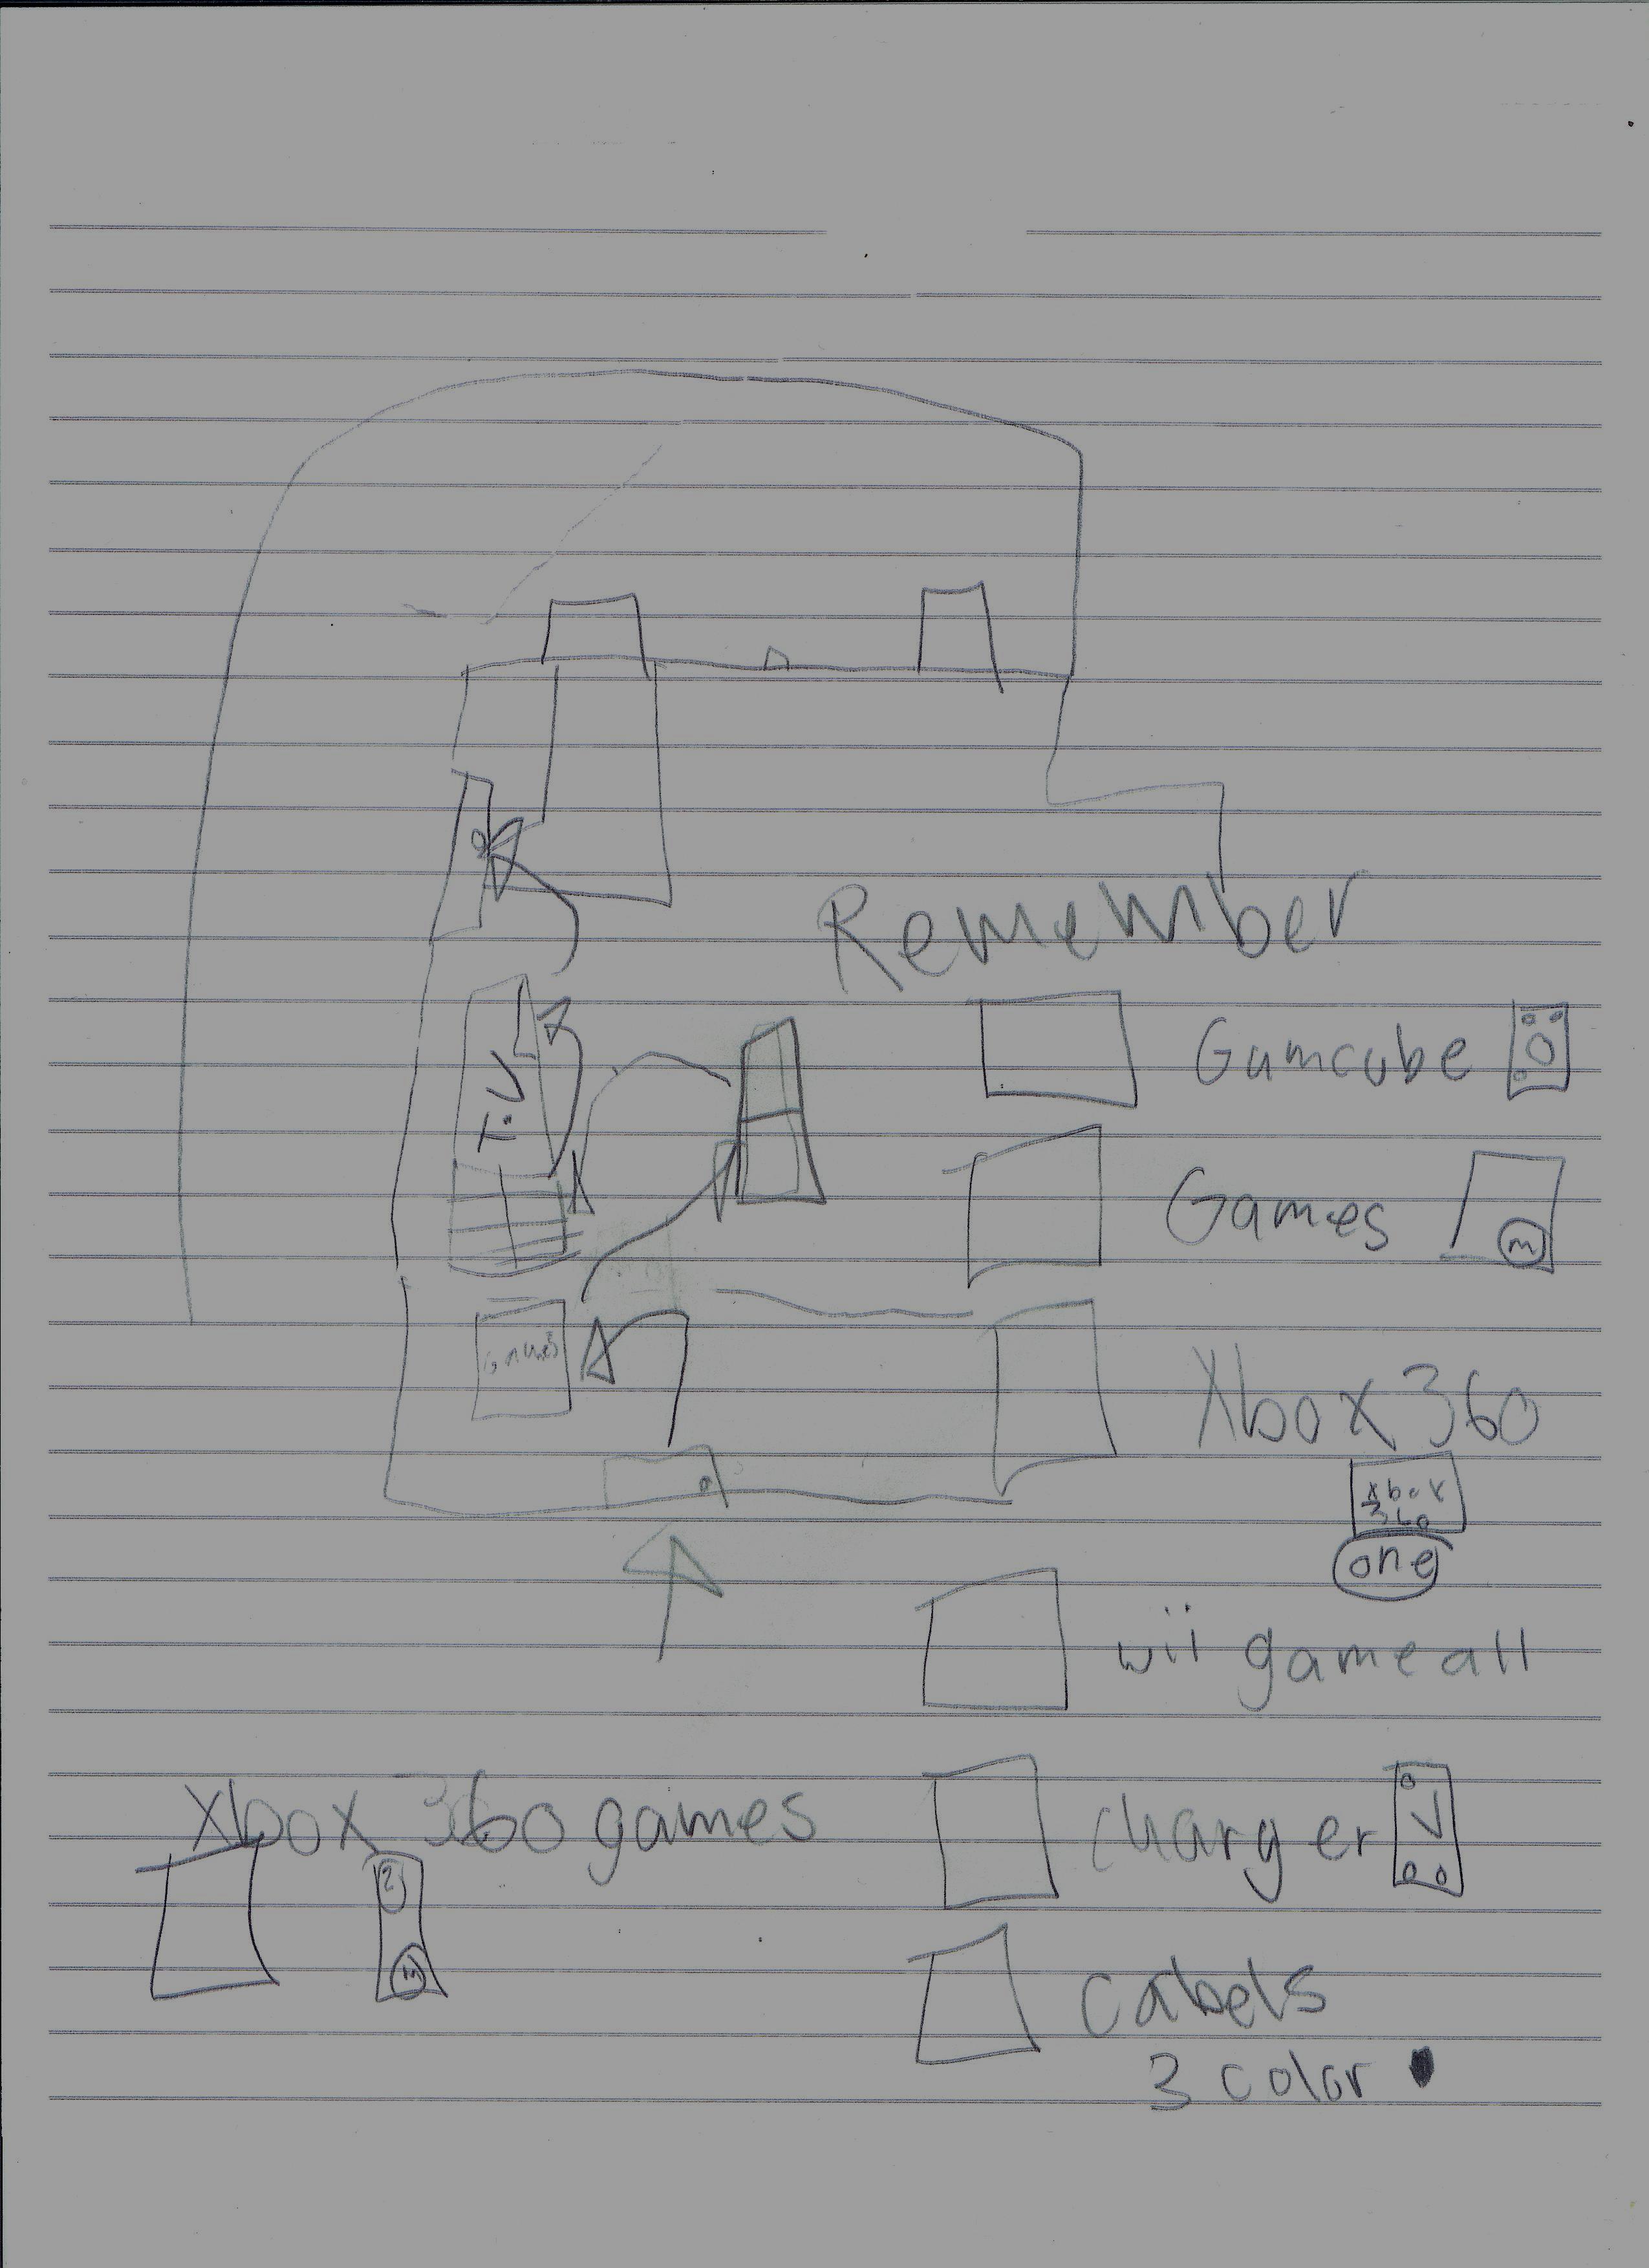 Remember
T.V
Gamcube
Games
m
Games
Xbox 360
xbox
360
one
wii game all
Xbox 360 games
charger
cabels
3 color